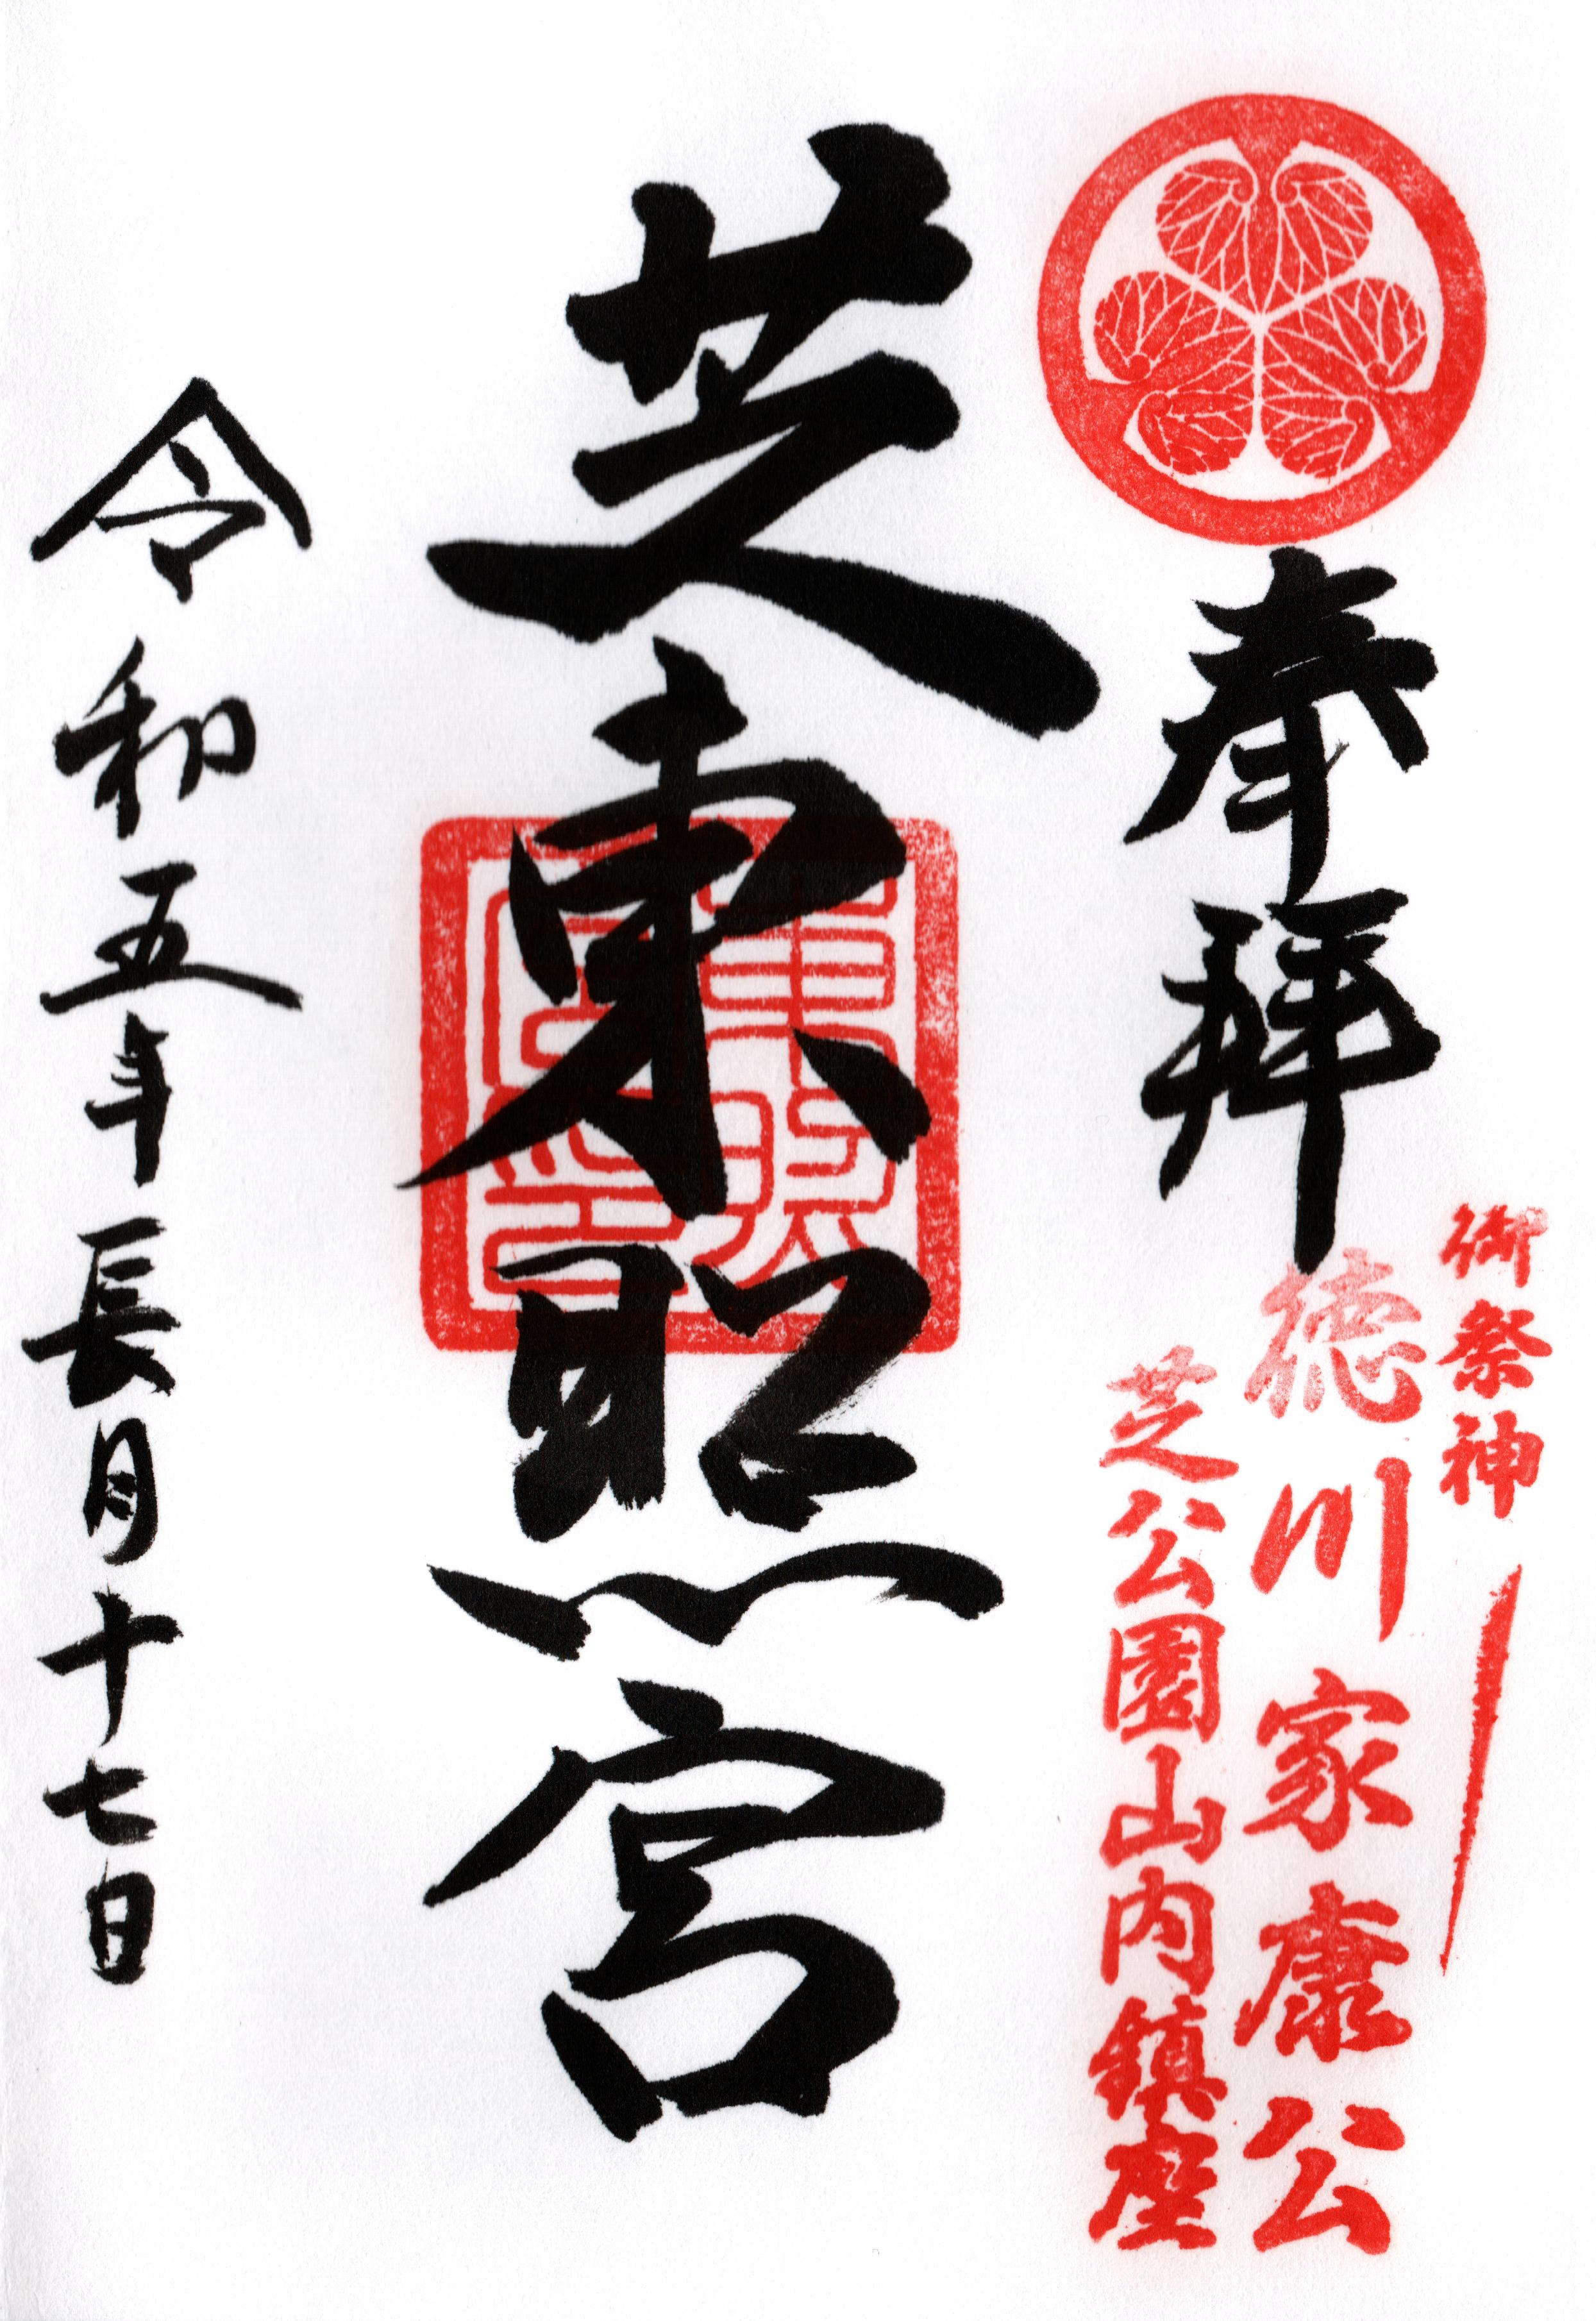 奉拝
御祭神
徳川家康公
芝公園山内鎮座
芝東照宮
東照宮印
令和五年長月十七日